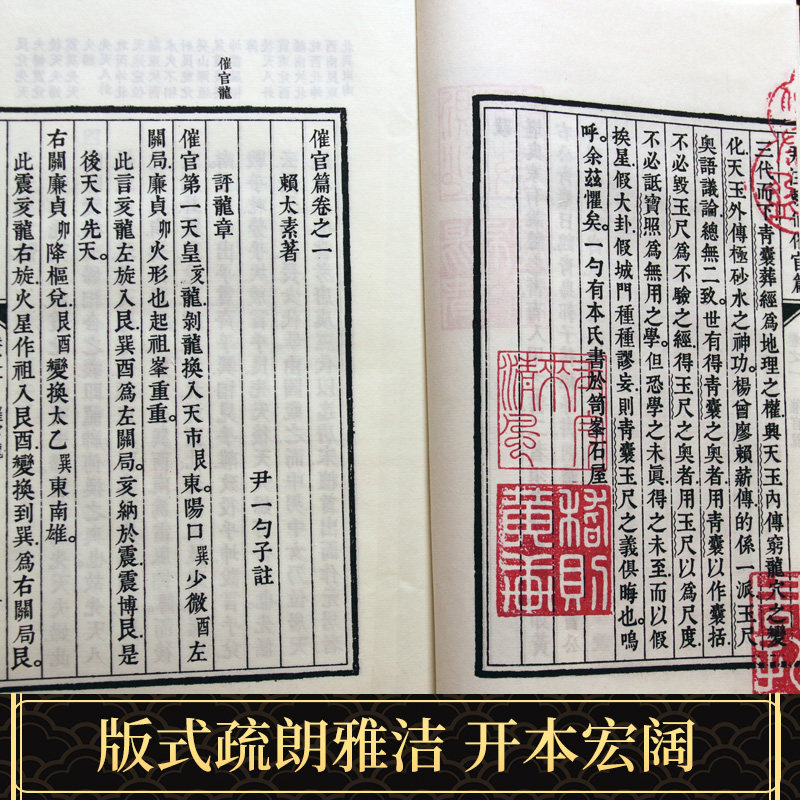 官篇
三代而下青囊葬經爲地理之權輿天玉內傳窮龍穴之變
化天玉外傳極砂水之神功。楊曾廖賴薪傳的係一派玉尺
奧語議論總無二致。世有得青囊之奧者用青囊以作囊括
不必毀玉尺爲不驗之經得玉尺之奧者用玉尺以爲尺度
不必詆寶照爲無用之學。但恐學之未眞得之未至而以假
挨星假大卦假城門種種謬妄則青囊玉尺之義俱晦也嗚
呼。余茲懼矣。一勺有本氏書於笥峯石屋
清風
催官龍
催官篇卷之一
賴太素著
尹一勺子註
評龍章
催官第一天皇亥龍剝龍換入天市艮東陽口巽少微酉左
關局廉貞卯火形也起祖峯重重。
此言亥龍左旋入艮巽酉爲左關局。亥納於震震博艮是
後天入先天。
右關廉貞卯降樞兌艮酉變換太乙巽東南雄。
此震亥龍右旋火星作祖入艮酉變換到巽爲右關局艮。
版式疏朗雅洁 开本宏阔